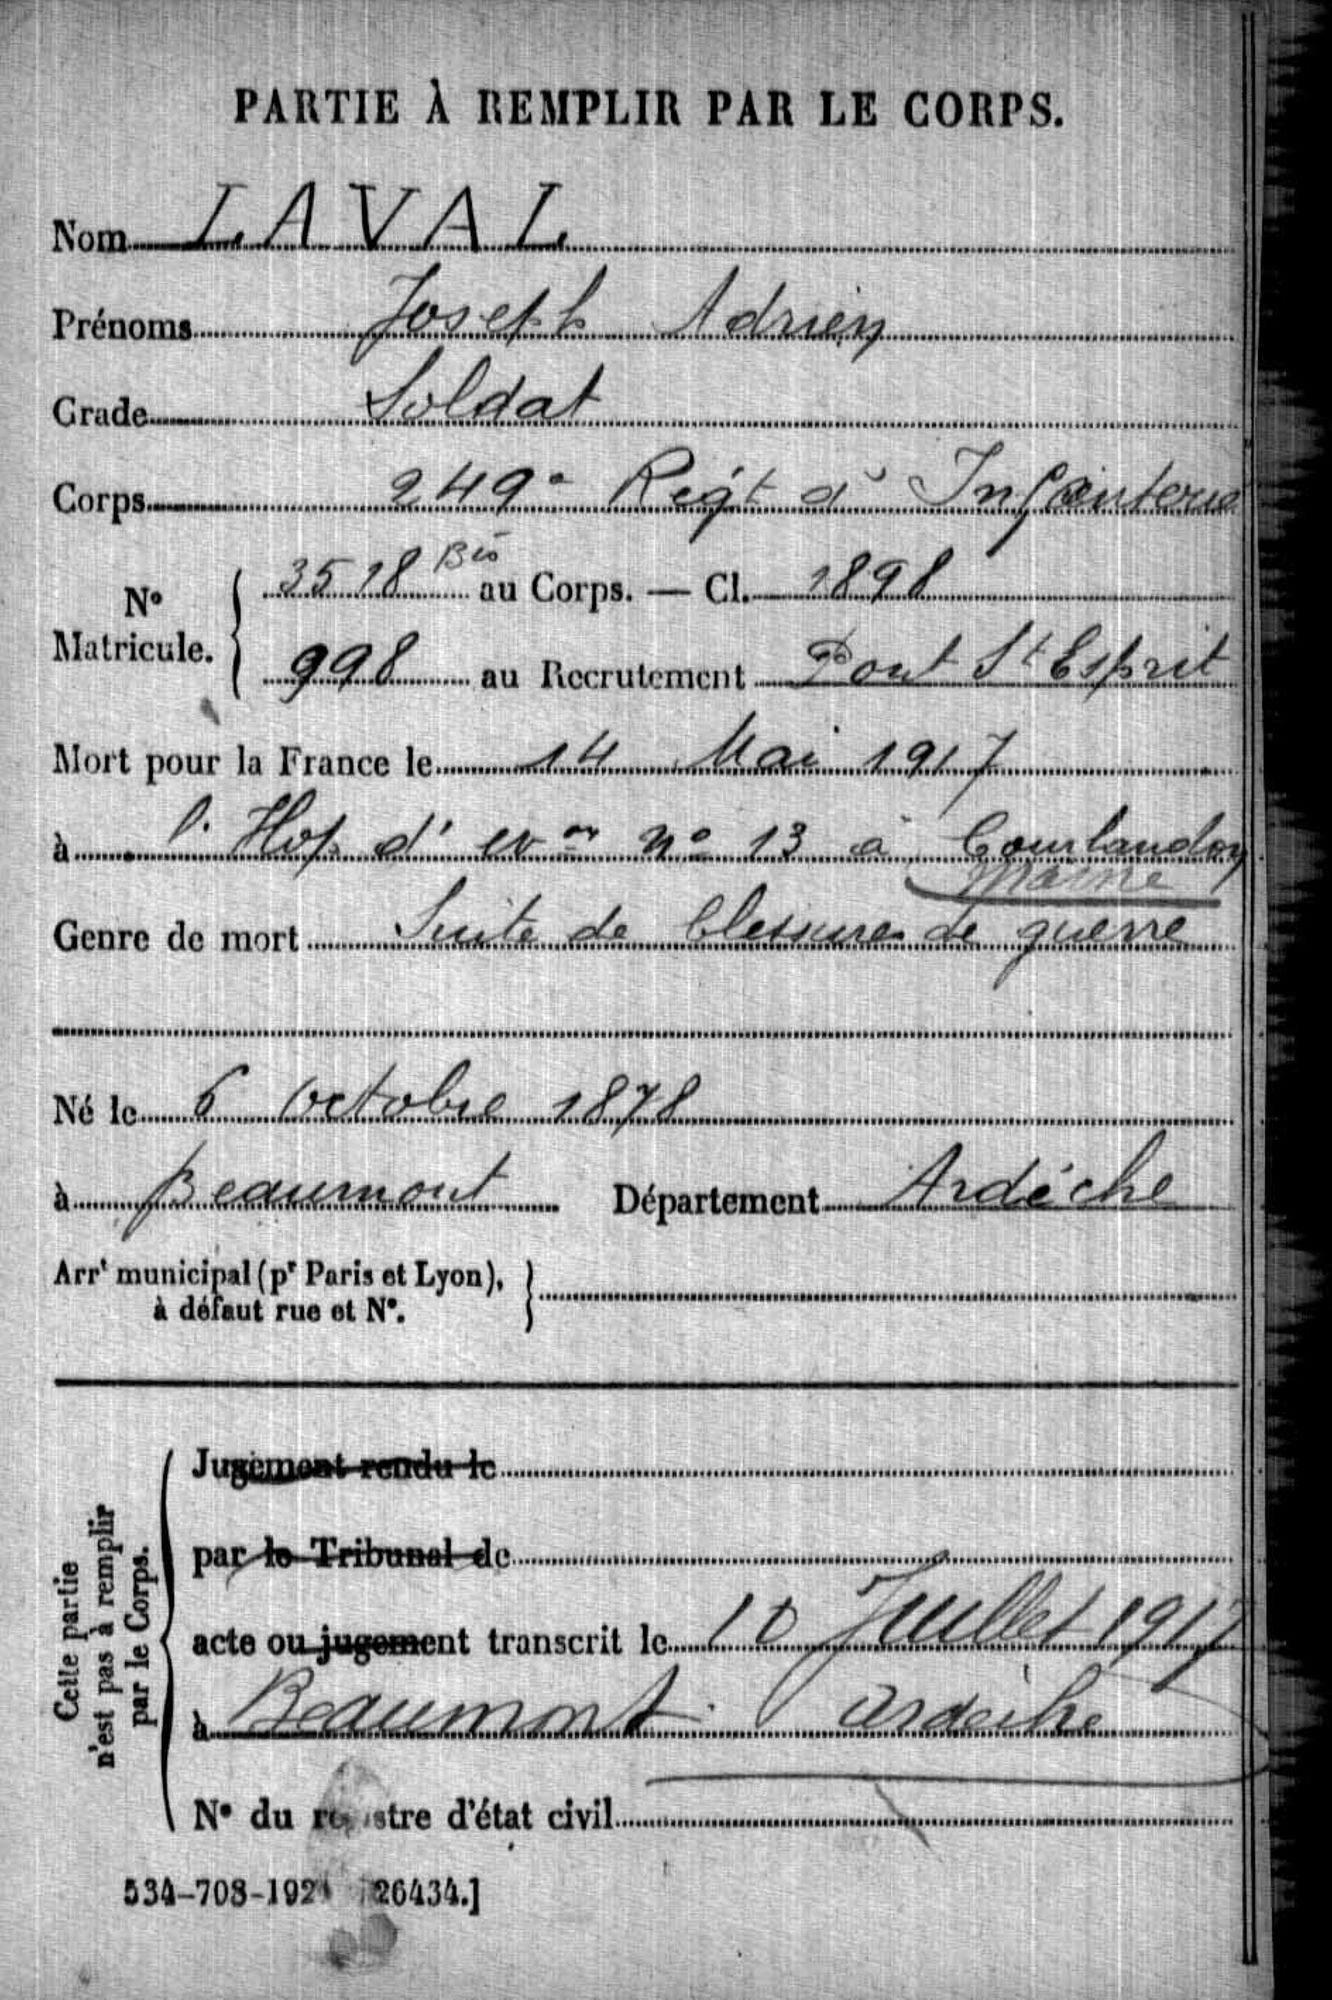 PARTIE À REMPLIR PAR LE CORPS.
Nom LAVAL
Prénoms Joseph Adrien
Grade Soldat
Corps 249e Régt d'Infanterie
N° Matricule. 3518 Bis au Corps. — Cl. 1898
998 au Recrutement Pont St Esprit
Mort pour la France le 14 Mai 1917
à l'Hop. d'evon n° 13 à Courlandon
Marne
Genre de mort Suite de blessures de guerre
Né le 6 octobre 1878
à Beaumont Département Ardèche
Arrt municipal (pr Paris et Lyon),
à défaut rue et N°.
Cette partie
n'est pas à remplir
par le Corps.
Jugement rendu le
par le Tribunal de
acte ou jugement transcrit le 10 Juillet 1917
à Beaumont Ardèche
N° du registre d'état civil
534-708-192 26434.]